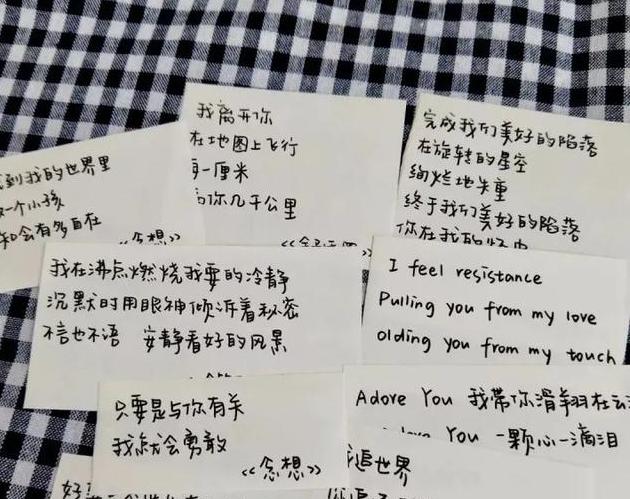 我离开你
在地图上飞行
每一厘米
离你几千公里
完成我们美好的陷落
在旋转的星空
绚烂地失重
终于我们美好的陷落
你在我的怀内
到我的世界里
一个小孩
知会有多自在
《念想》
我在沸点燃烧我要的冷静
沉默时用眼神倾诉着秘密
不言也不语 安静看好的风景
I feel resistance
Pulling you from my love
olding you from my touch
只要是与你有关
我就会勇敢
《念想》
Adore You 我带你滑翔在云
You 一颗心一滴泪
追世界